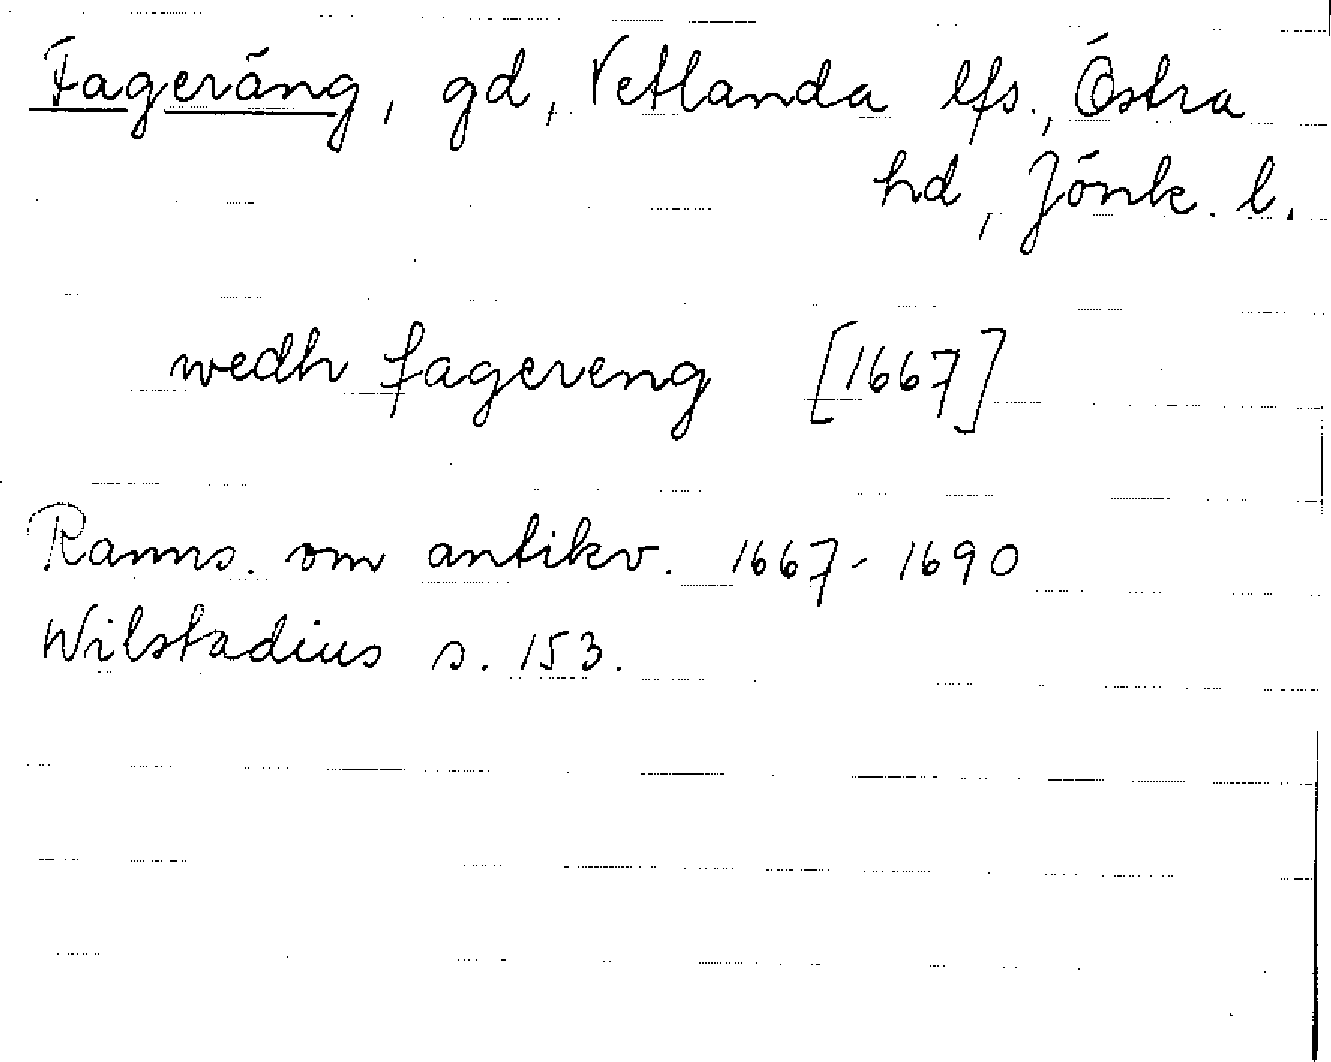 Fageräng, gd, Vetlanda lfs., Östra
hd, Jönk. l.
wedh fagereng [1667]
Ranns. om antikv. 1667-1690
Wilstadius s. 153.